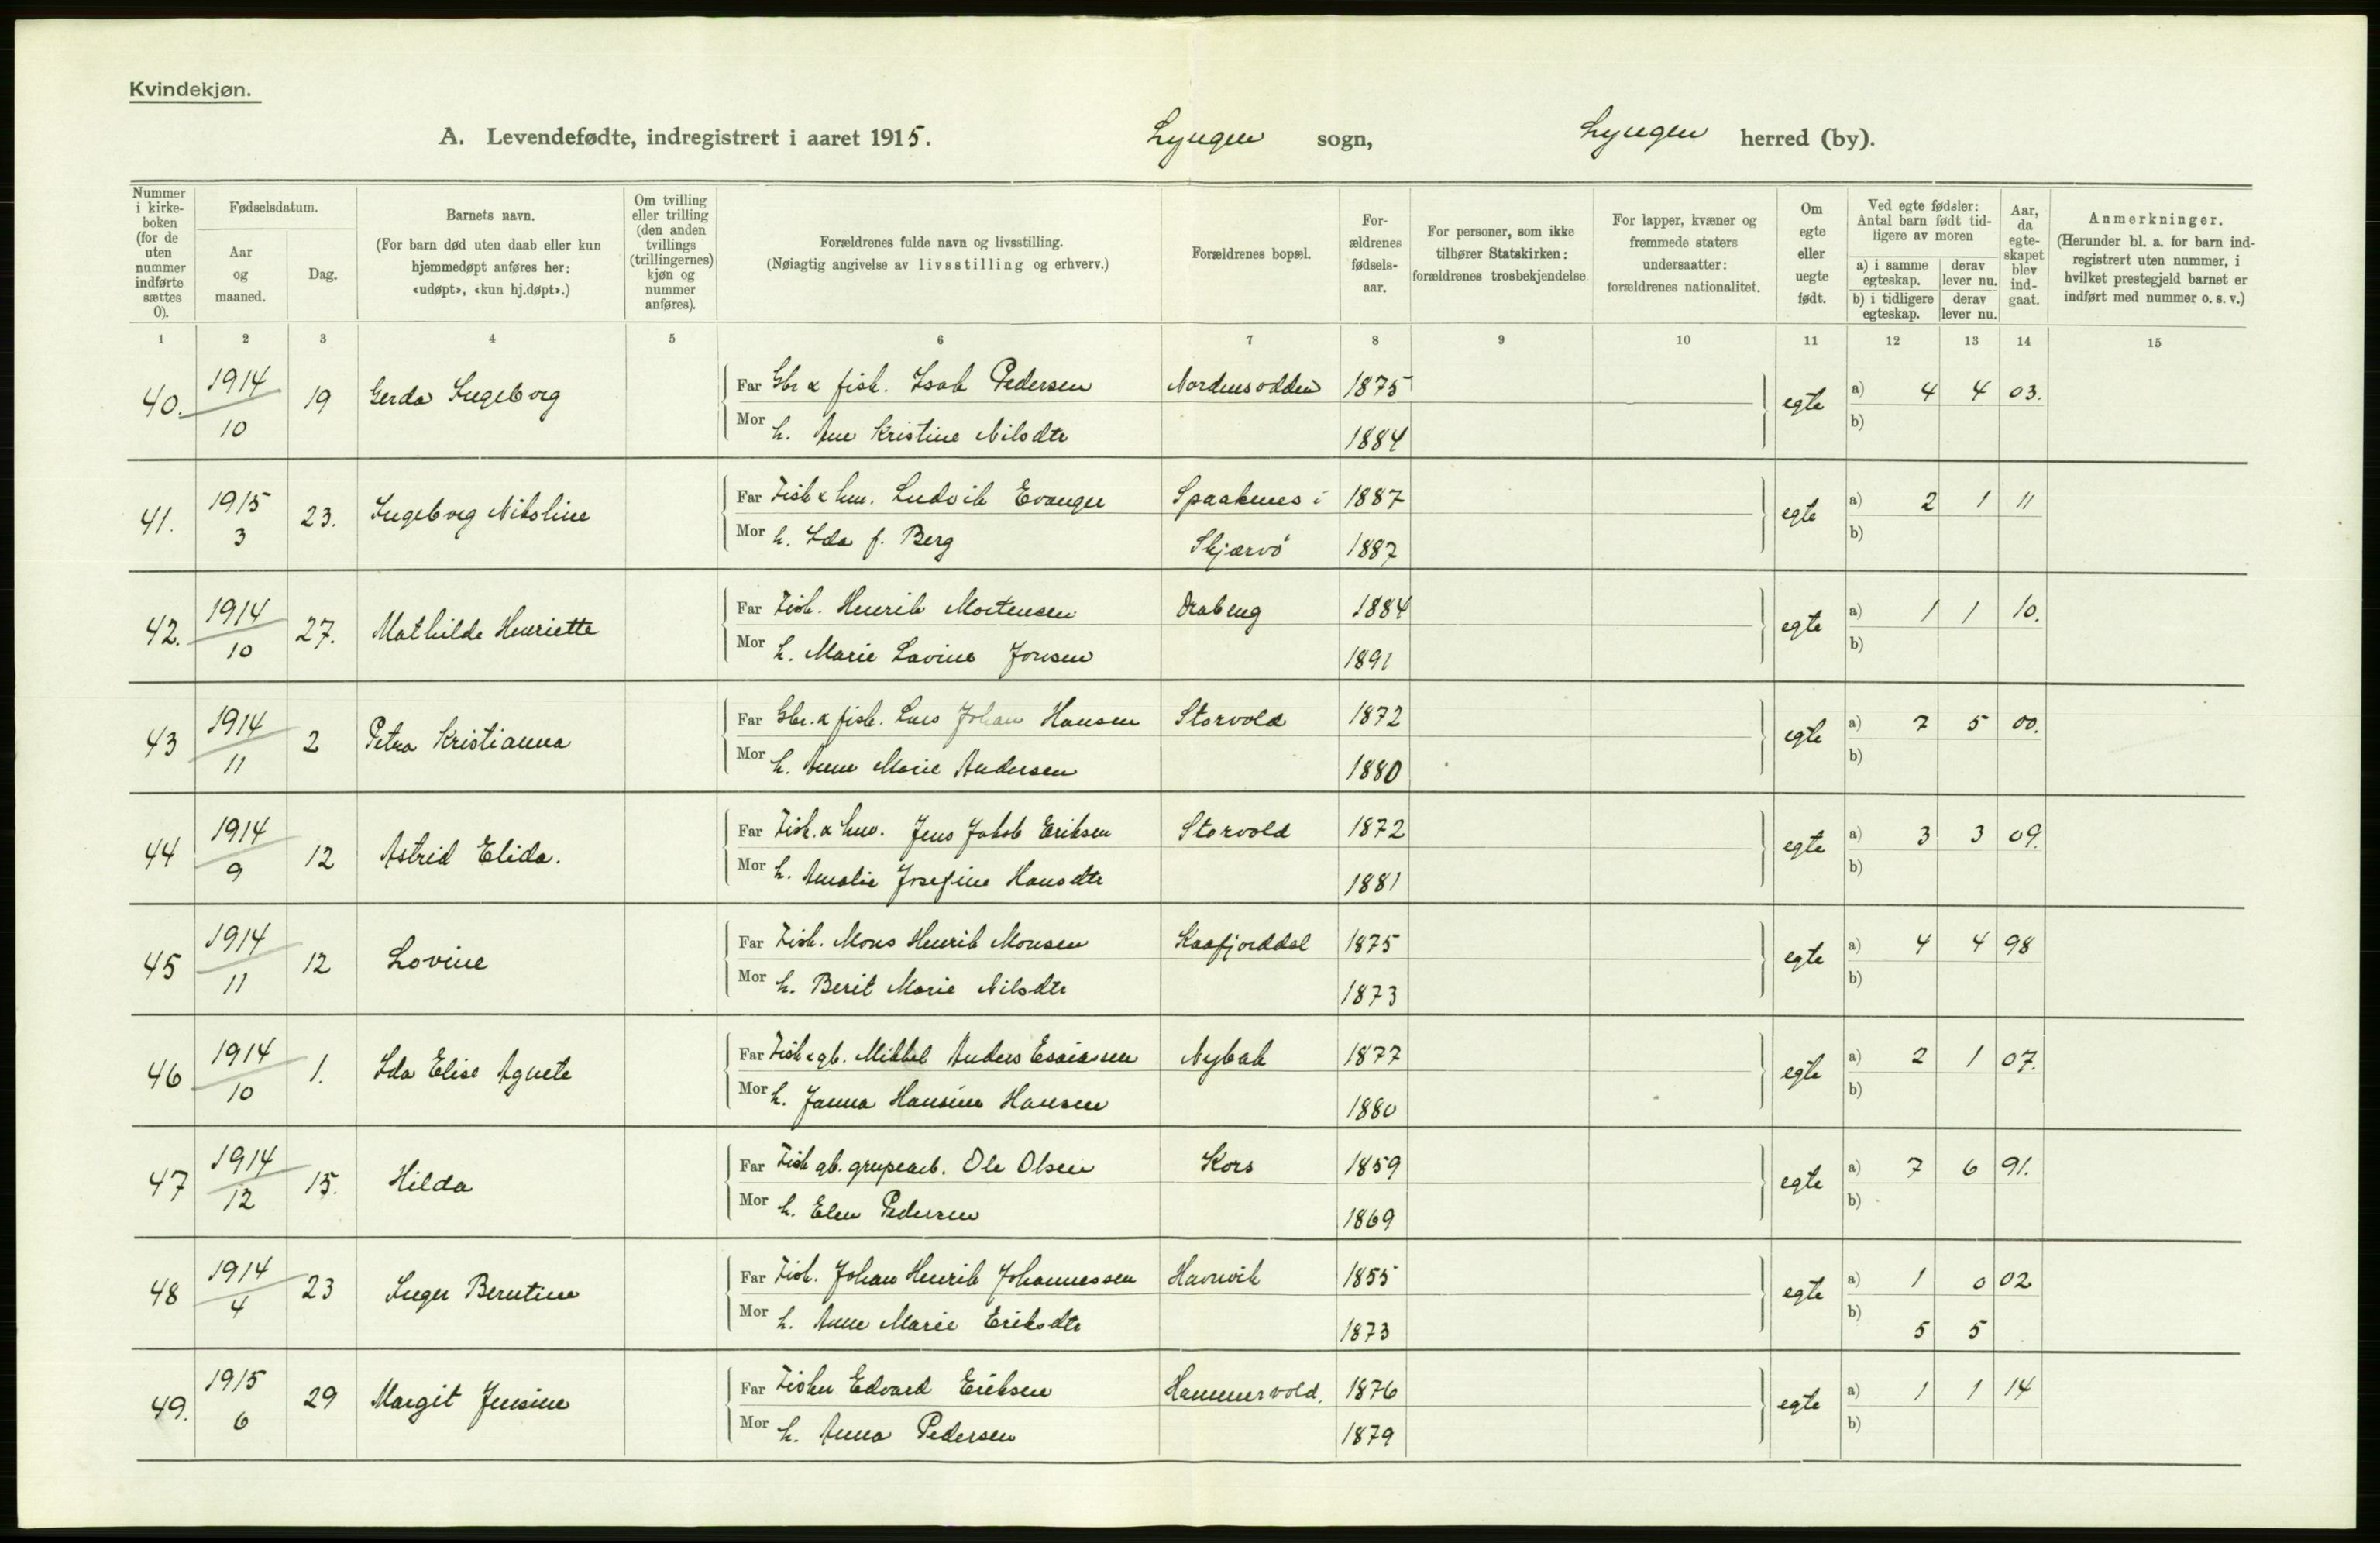 Kvindekjøn.
A. Levendefødte, indregistrert i aaret 1915. Lyngen sogn, Lyngen herred (by).
Nummer i kirke-boken (for de uten nummer indførte sættes 0).
Fødselsdatum.
Aar og maaned.
Dag.
Barnets navn.
(For barn død uten daab eller kun hjemmedøpt anføres her: «udøpt», «kun hj.døpt».)
Om tvilling eller trilling (den anden tvillings (trillingernes) kjøn og nummer anføres).
Forældrenes fulde navn og livsstilling.
(Nøiagtig angivelse av livsstilling og erhverv.)
Forældrenes bopæl.
For-ældrenes fødsels-aar.
For personer, som ikke tilhører Statskirken: forældrenes trosbekjendelse.
For lapper, kvæner og fremmede staters undersaatter: forældrenes nationalitet.
Om egte eller uegte født.
Ved egte fødsler: Antal barn født tid-ligere av moren
a) i samme egteskap. derav lever nu.
b) i tidligere egteskap. derav lever nu.
Aar, da egte-skapet blev ind-gaat.
Anmerkninger.
(Herunder bl. a. for barn ind-registrert uten nummer, i hvilket prestegjeld barnet er indført med nummer o. s. v.)
1 2 3 4 5 6 7 8 9 10 11 12 13 14 15
40. 1914 10 19 Gerda Ingeborg Far Gbr & fisk. Isak Pedersen Nordmsodden 1875 egte a) 4 4 03.
Mor h. Ane Kristine Nilsdtr 1884 b)
41. 1915 3 23. Ingeborg Nikoline Far Fisk & hm. Ludvik Evanger Spaaknes i 1887 egte a) 2 1 11
Mor h. Ida f. Berg Skjærvö 1887 b)
42. 1914 10 27. Mathilde Henriette Far Fisk. Henrik Mortensen Drabeng 1884 egte a) 1 1 10.
Mor h. Marie Lavine Jonsen 1891 b)
43 1914 11 2 Petra Kristianna Far Gbr. & fisk. Lars Johan Hansen Storvold 1872 egte a) 7 5 00.
Mor h. Anne Marie Andersen 1880 b)
44 1914 9 12 Astrid Elida. Far Fisk. & hm. Jens Jakob Eriksen Storvold 1872 egte a) 3 3 09.
Mor h. Amalie Josefine Hansdtr 1881 b)
45 1914 11 12 Lovine Far Fisk. Mons Henrik Monsen Kaafjorddal 1875 egte a) 4 4 98
Mor h. Berit Marie Nilsdtr 1873 b)
46 1914 10 1. Ida Elise Agnete Far Fisk & gb. Mikkel Anders Esaiassen Nybak 1877 egte a) 2 1 07.
Mor h. Janna Hansine Hansen 1880 b)
47 1914 12 15. Hilda Far Fisk gb. grupearb. Ole Olsen Kors 1859 egte a) 7 6 91.
Mor h. Elen Pedersen 1869 b)
48 1914 4 23 Inger Berntine Far Fisk. Johan Henrik Johannessen Havnvik 1855 egte a) 1 0 02
Mor h. Anne Marie Eriksdtr 1873 b) 5 5
49. 1915 6 29 Margit Jensine Far Fisker Edvard Eriksen Hammervold. 1876 egte a) 1 1 14
Mor h. Anna Pedersen 1879 b)